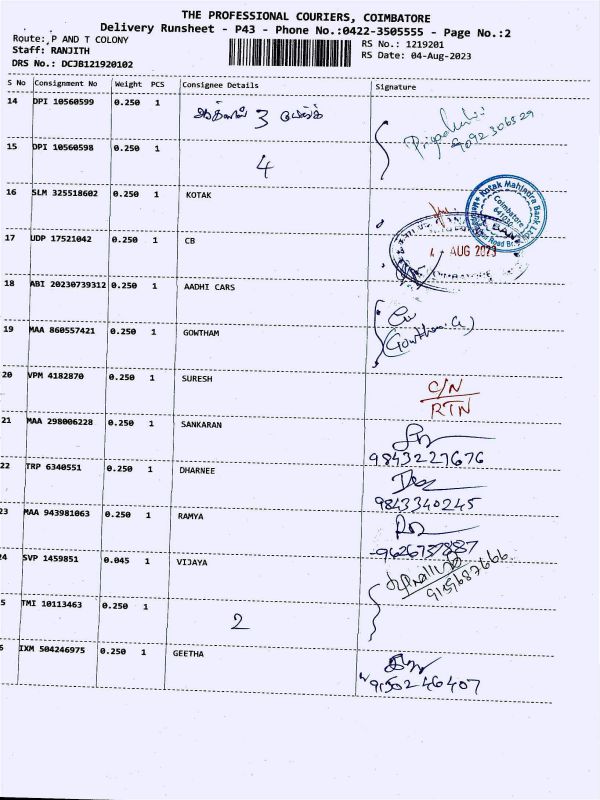 THE PROFESSIONAL COURIERS, COIMBATORE
Delivery Runsheet - P43 - Phone No.:0422-3505555 - Page No.:2
Route: P AND T COLONY
RS No.: 1219201
Staff: RANJITH
RS Date: 04-Aug-2023
DRS No.: DCJB121920102
S No Consignment No Weight PCS Consignee Details Signature
14 DPI 10560599 0.250 1 3
9092306529
15 DPI 10560598 0.250 1
4
16 SLM 325518602 0.250 1 KOTAK
Kotak Mahindra Bank Ltd
Coimbatore
17 UDP 17521042 0.250 1 CB
4 AUG 2023
18 ABI 20230739312 0.250 1 AADHI CARS
19 MAA 860557421 0.250 1 GOWTHAM
(Gowtham.G)
20 VPM 4182870 0.250 1 SURESH
C/N
RTN
21 MAA 298006228 0.250 1 SANKARAN
9843227676
22 TRP 6340551 0.250 1 DHARNEE
9843340245
23 MAA 943981063 0.250 1 RAMYA
9626737887
24 SVP 1459851 0.045 1 VIJAYA
9159687666
5 TMI 10113463 0.250 1
2
6 IXM 504246975 0.250 1 GEETHA
9150246407